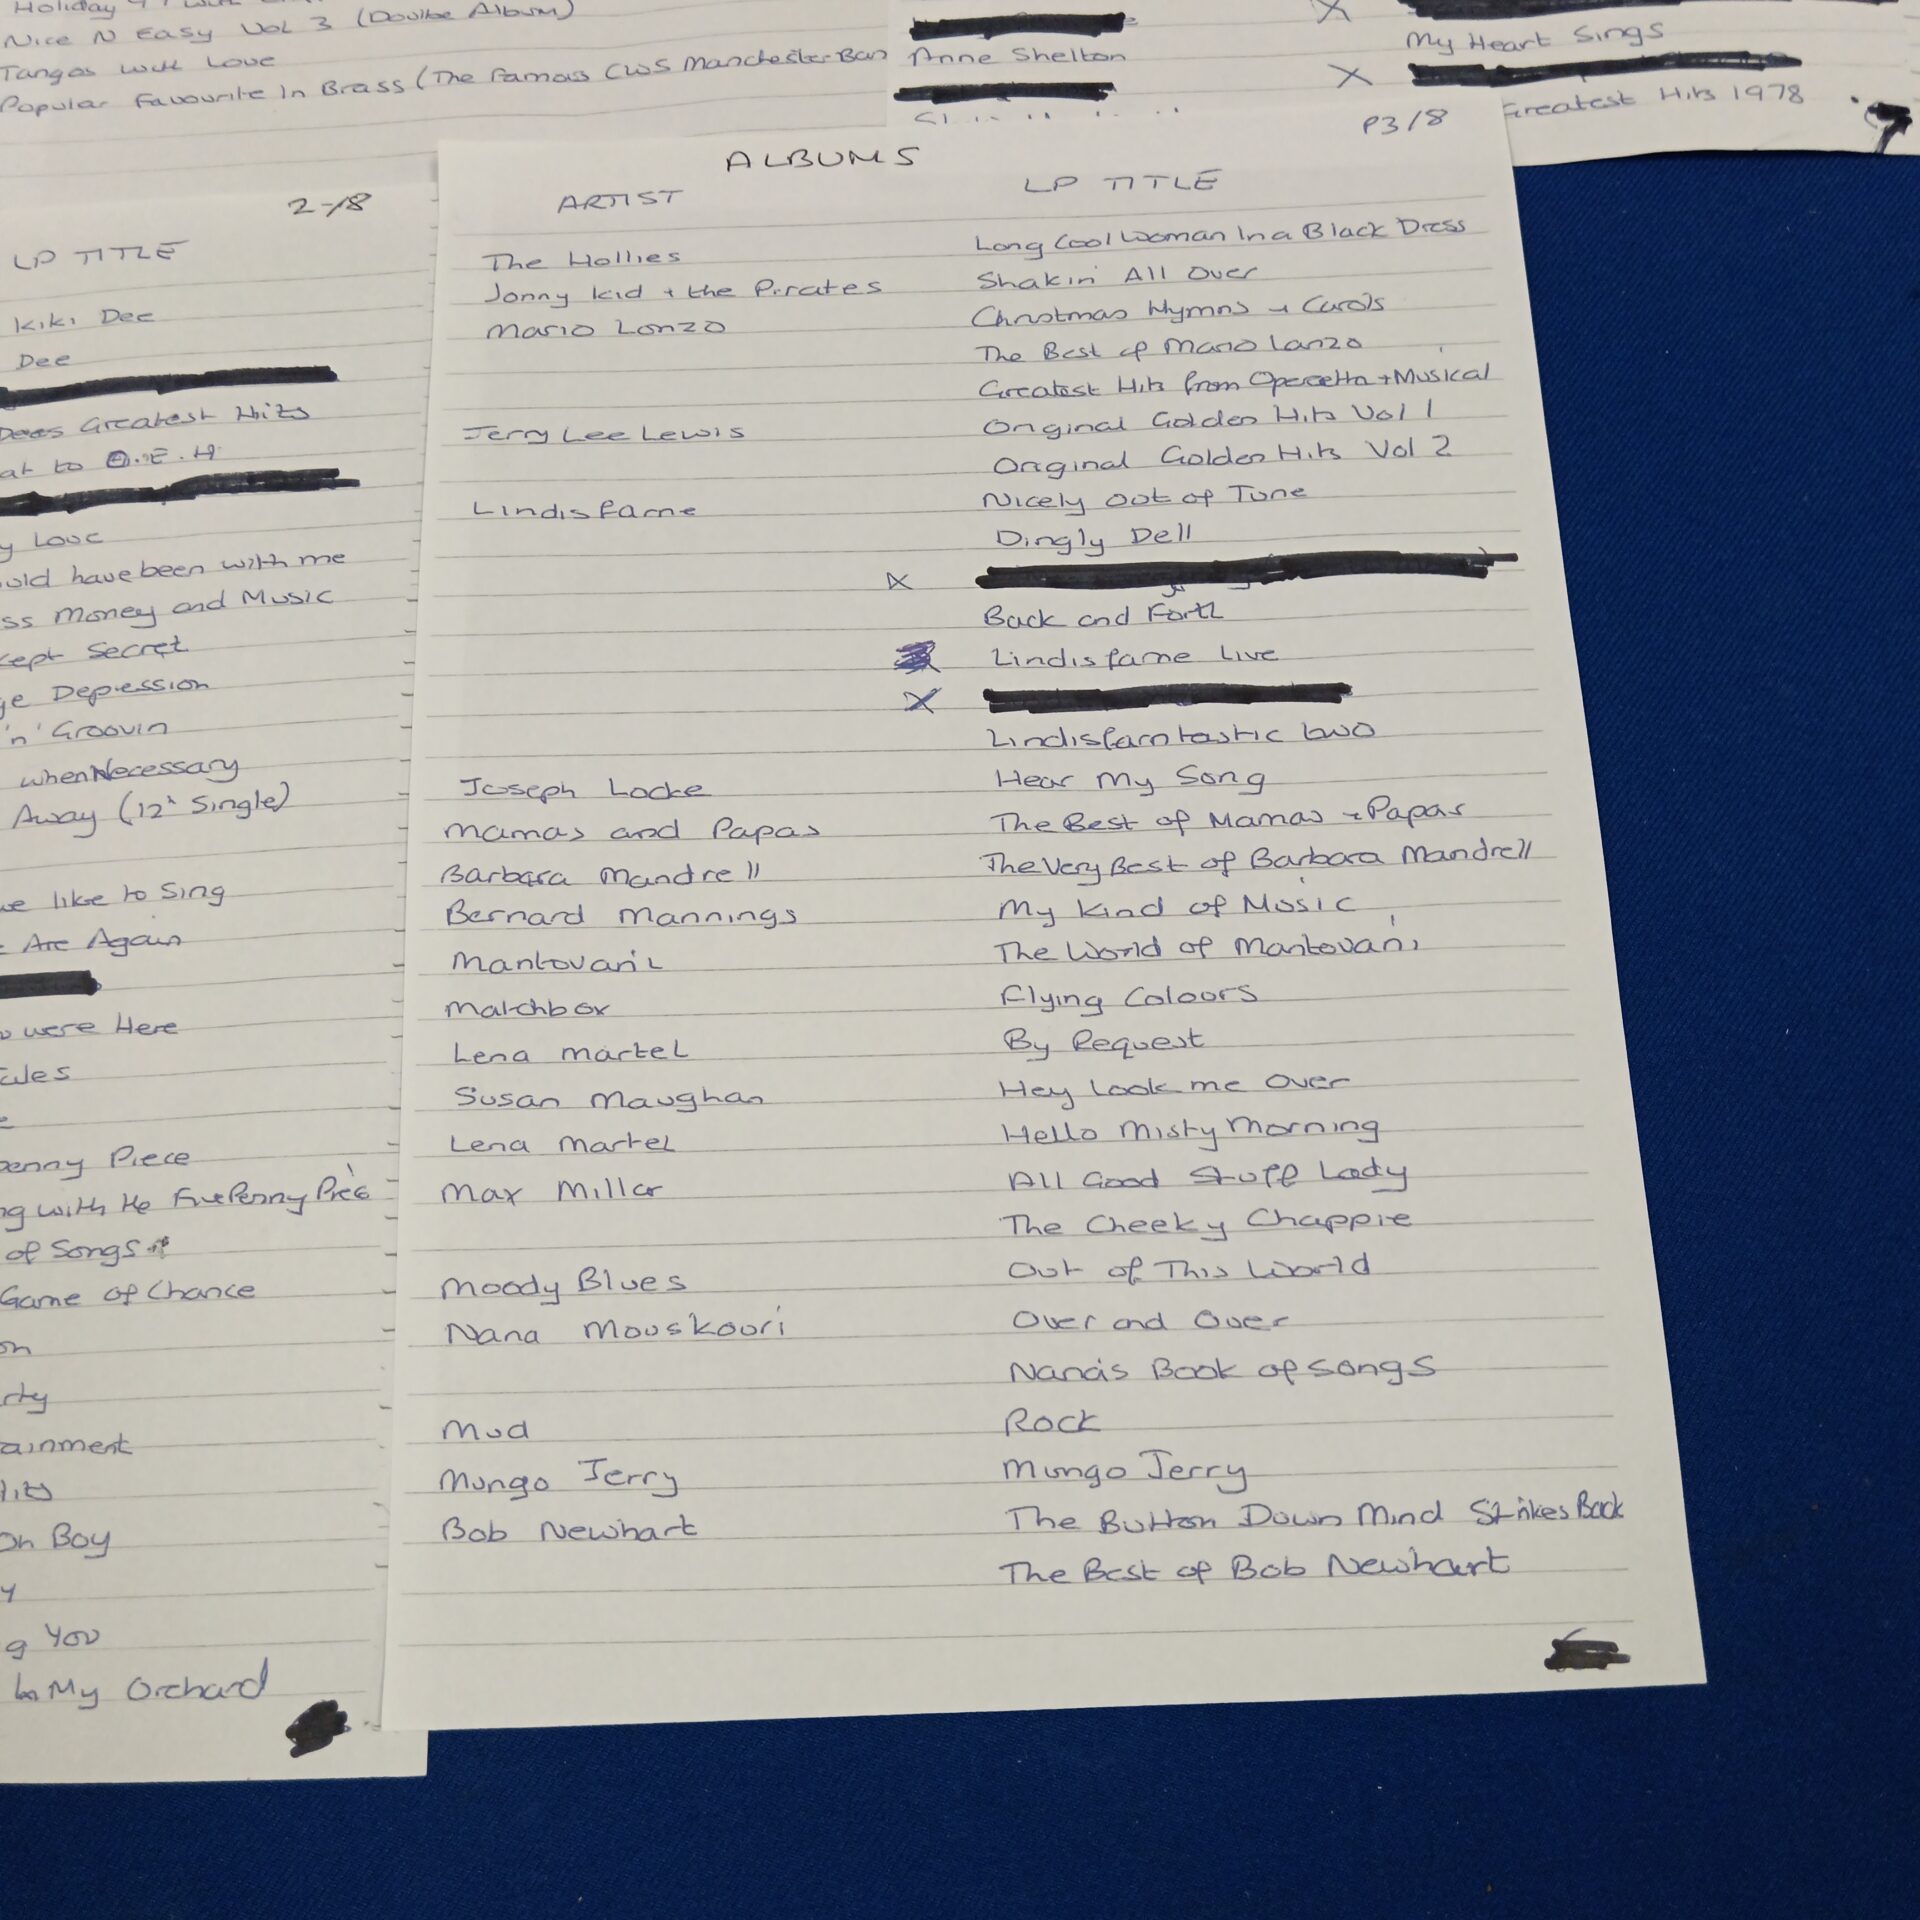 Holiday
Nice N Easy Vol 3 (Doulbe Album)
Tangos with Love
Popular Favourite In Brass (The Famous CWS Manchester Ban
Anne Shelton
X
My Heart Sings
X
Greatest Hits 1978
2-/8
LP TITLE
Kiki Dee
Dee
Dees Greatest Hits
at to O.E.H.
y Love
ould have been with me
ss Money and Music
kept Secret
ge Depression
'n' Groovin
when Necessary
Away (12" Single)
we like to Sing
e Are Again
were Here
ules
e
penny Piece
ng with the Five Penny Piece
of Songs
Game of Chance
on
rty
ainment
Hits
Oh Boy
y
g You
In My Orchard
P3/8
ALBUMS
ARTIST LP TITLE
The Hollies Long Cool Woman In a Black Dress
Jonny Kid + the Pirates Shakin' All Over
Mario Lonzo Christmas Hymns + Carols
The Best of Mario Lanzo
Greatest Hits from Operetta + Musical
Jerry Lee Lewis Original Golden Hits Vol 1
Original Golden Hits Vol 2
Lindisfarne Nicely Out of Tune
Dingly Dell
X
Back and Forth
Lindisfarne Live
X
Lindisfarntastic two
Joseph Locke Hear My Song
Mamas and Papas The Best of Mamas + Papas
Barbara Mandrell The Very Best of Barbara Mandrell
Bernard Mannings My Kind of Music
Mantovani The World of Mantovani
Matchbox Flying Colours
Lena Martel By Request
Susan Maughan Hey Look me Over
Lena Martel Hello Misty Morning
Max Miller All Good Stuff Lady
The Cheeky Chappie
Moody Blues Out of This World
Nana Mouskouri Over and Over
Nana's Book of Songs
Mud Rock
Mungo Jerry Mungo Jerry
Bob Newhart The Button Down Mind Strikes Back
The Best of Bob Newhart